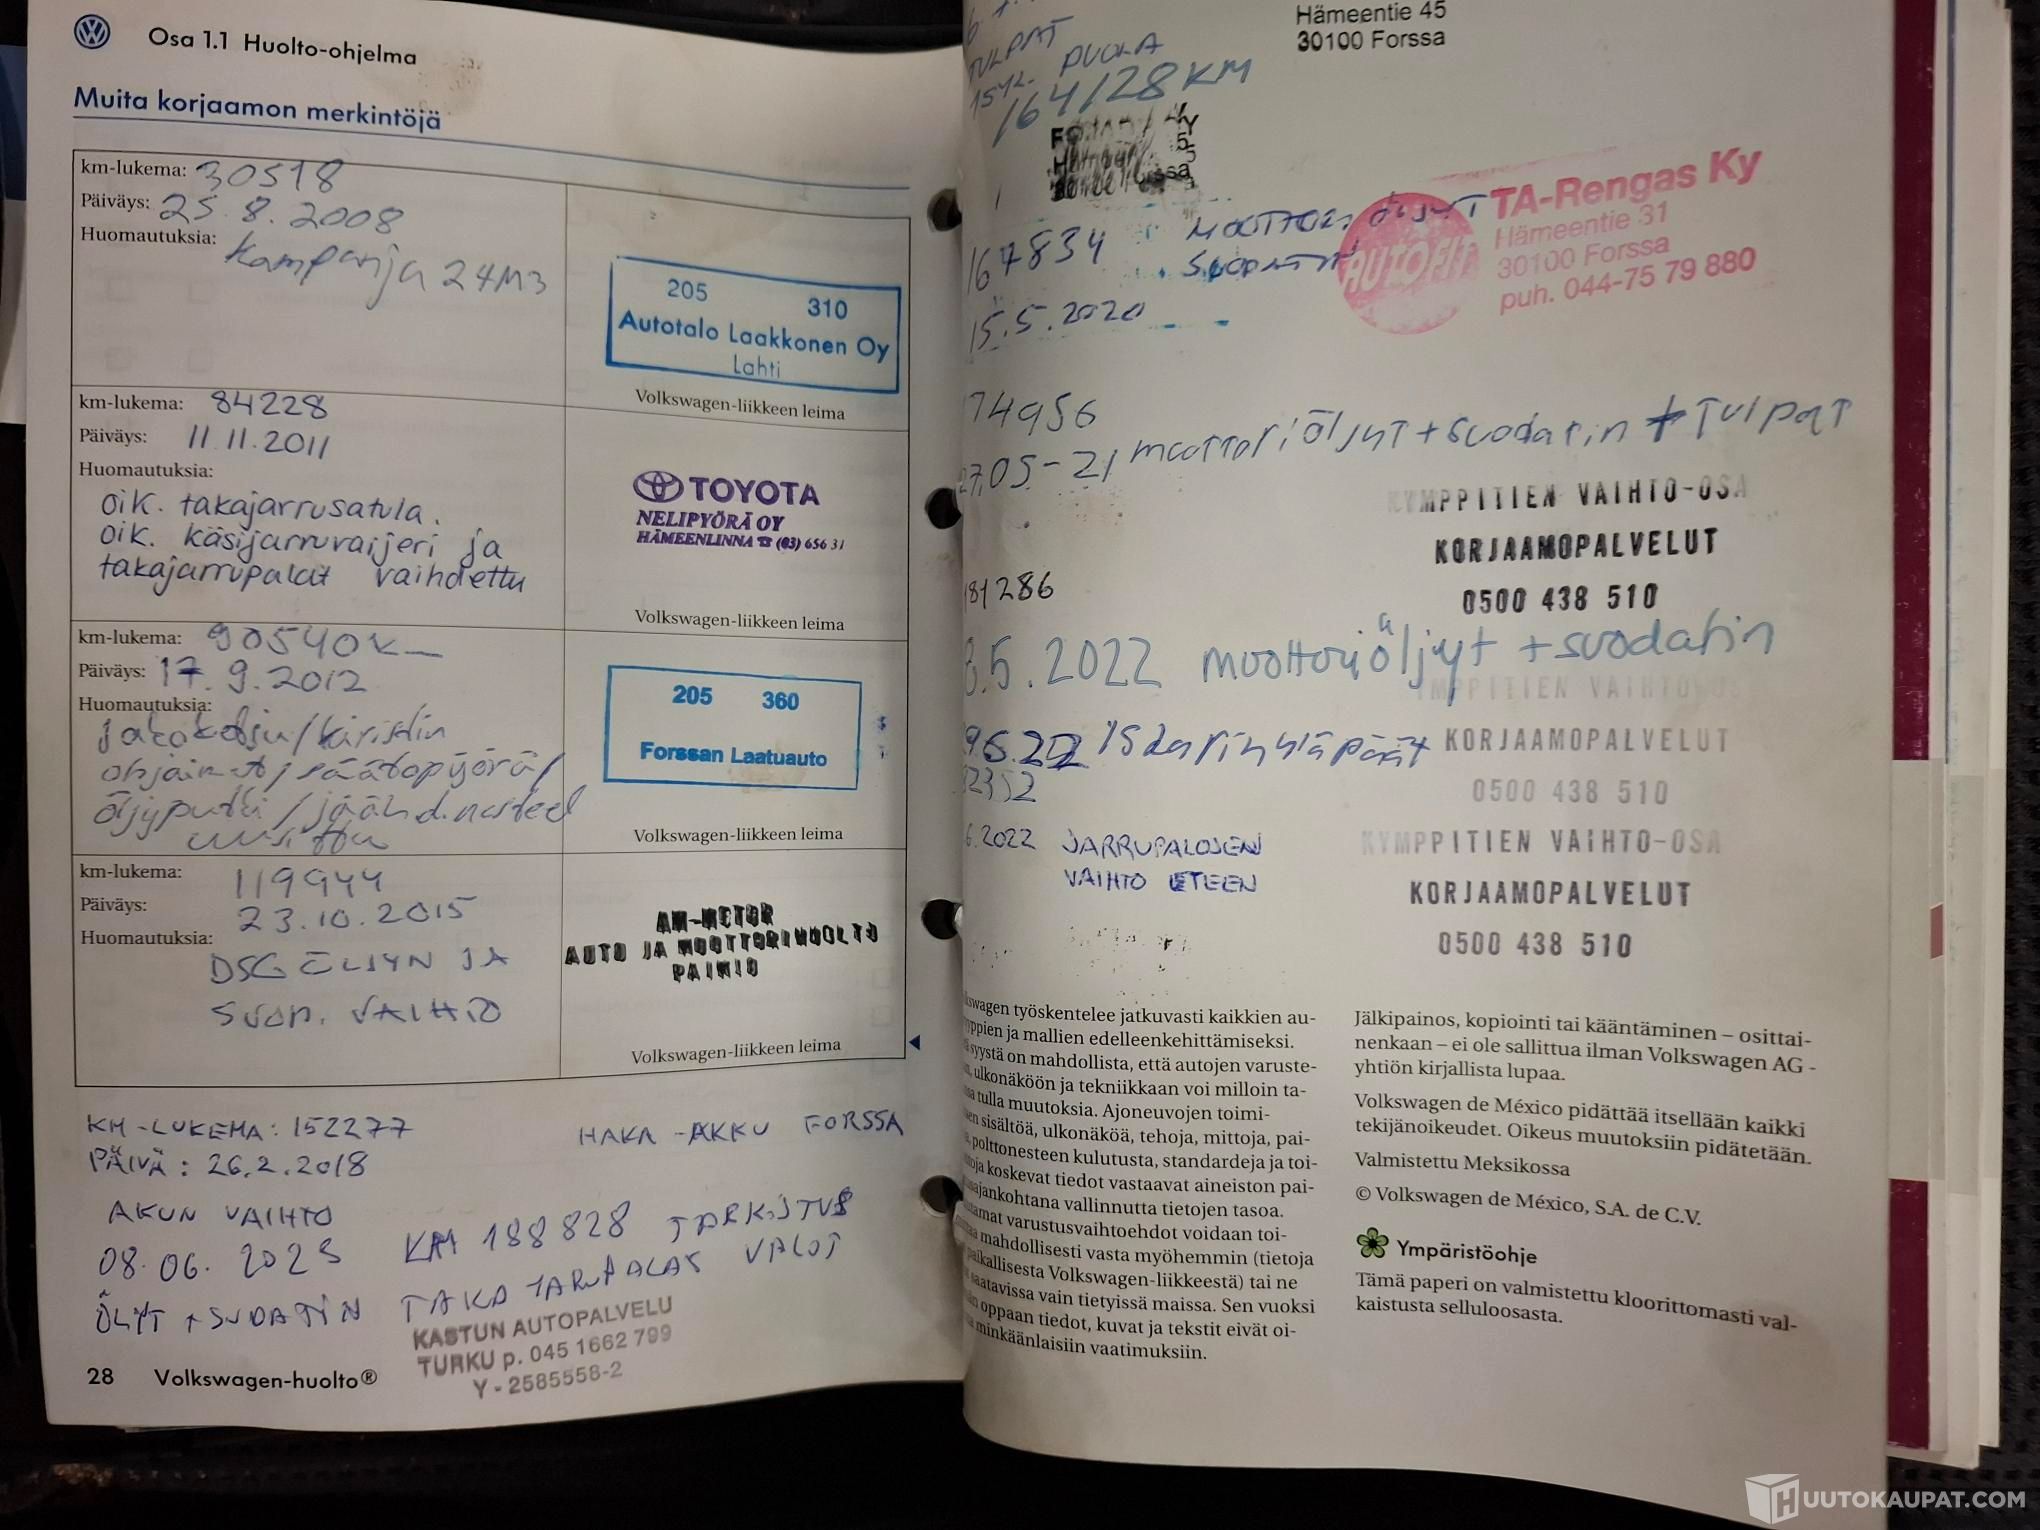 Osa 1.1 Huolto-ohjelma
Muita korjaamon merkintöjä
km-lukema: 30518
Päiväys: 25.8.2008
Huomautuksia: Kampanja 24M3
205 310
Autotalo Laakkonen Oy
Lahti
Volkswagen-liikkeen leima
km-lukema: 84228
Päiväys: 11.11.2011
Huomautuksia:
oik. takajarrusatula.
oik. käsijarruvaijeri ja
takajarrupalat vaihdettu
TOYOTA
NELIPYÖRÄ OY
HÄMEENLINNA ☎ (03) 656 31
Volkswagen-liikkeen leima
km-lukema: 90540
Päiväys: 17.9.2012
Huomautuksia:
jakoketju/kiristin
ohjaimet/säätöpyörä/
öljyputki/jäähd.nesteet
uusittu
205 360
Forssan Laatuauto
Volkswagen-liikkeen leima
km-lukema: 119944
Päiväys: 23.10.2015
Huomautuksia:
DSG ÖLJYN JA
SUOD. VAIHTO
AM-MOTOR
AUTO JA MOOTTORIHUOLTO
PAIMIO
Volkswagen-liikkeen leima
KM-LUKEMA: 152277
HAKA-AKKU FORSSA
PÄIVÄ: 26.2.2018
AKUN VAIHTO
08.06.2023 KM 188828 TARKISTUS
ÖLJYT + SUDATIN TAKA JARUPALAT VALOT
KASTUN AUTOPALVELU
TURKU p. 045 1662 799
Y - 2585558-2
28 Volkswagen-huolto®
Hämeentie 45
30100 Forssa
TULPAT
15YL. PUOLA
164128 KM
167834 MOOTTORI ÖLJYT
SUODATIN
15.5.2020
TA-Rengas Ky
Hämeentie 31
30100 Forssa
puh. 044-75 79 880
AUTOFIT
74956
27.05-21 moottoriöljyt + suodatin + Tulpat
KYMPPITIEN VAIHTO-OSA
KORJAAMOPALVELUT
0500 438 510
181286
8.5.2022 moottoriöljyt + suodatin
KYMPPITIEN VAIHTO-OSA
KORJAAMOPALVELUT
0500 438 510
2352
6.2022 JARRUPALOJEN
VAIHTO ETEEN
KYMPPITIEN VAIHTO-OSA
KORJAAMOPALVELUT
0500 438 510
swagen työskentelee jatkuvasti kaikkien au-
yppien ja mallien edelleenkehittämiseksi.
syystä on mahdollista, että autojen varuste-
ulkonäköön ja tekniikkaan voi milloin ta-
tulla muutoksia. Ajoneuvojen toimi-
sen sisältöä, ulkonäköä, tehoja, mittoja, pai-
polttonesteen kulutusta, standardeja ja toi-
toja koskevat tiedot vastaavat aineiston pai-
usajankohtana vallinnutta tietojen tasoa.
utamat varustusvaihtoehdot voidaan toi-
mahdollisesti vasta myöhemmin (tietoja
paikallisesta Volkswagen-liikkeestä) tai ne
saatavissa vain tietyissä maissa. Sen vuoksi
oppaan tiedot, kuvat ja tekstit eivät oi-
minkäänlaisiin vaatimuksiin.
Jälkipainos, kopiointi tai kääntäminen – osittai-
nenkaan – ei ole sallittua ilman Volkswagen AG -
yhtiön kirjallista lupaa.
Volkswagen de México pidättää itsellään kaikki
tekijänoikeudet. Oikeus muutoksiin pidätetään.
Valmistettu Meksikossa
© Volkswagen de México, S.A. de C.V.
Ympäristöohje
Tämä paperi on valmistettu kloorittomasti val-
kaistusta selluloosasta.
HUUTOKAUPAT.COM